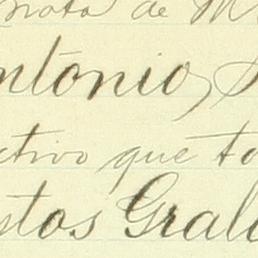 nota de M
ntonio, S
ctivo que to
stos Grala